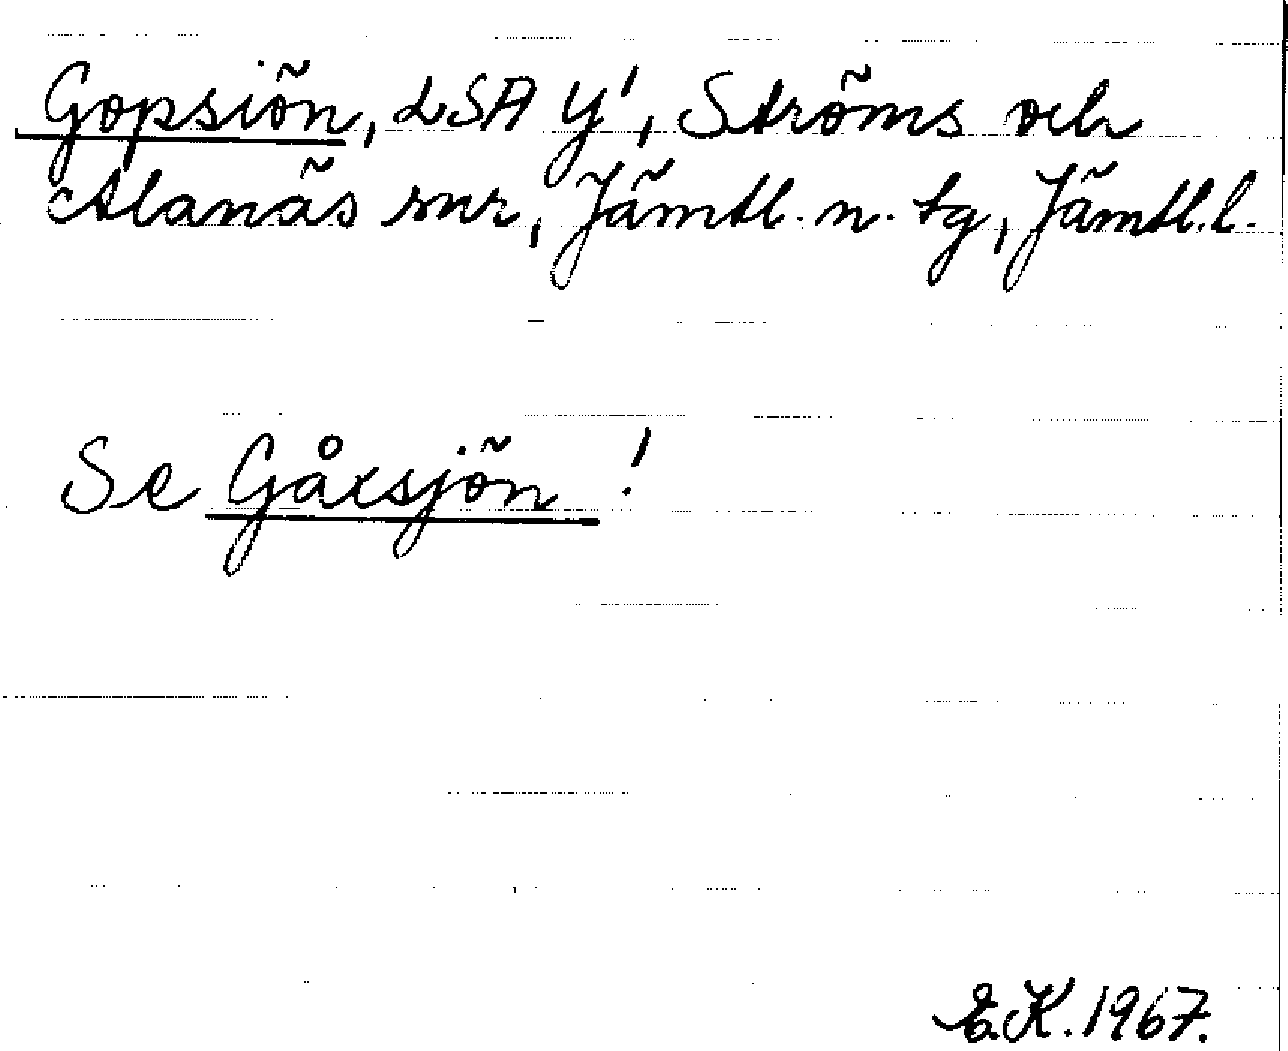 Gopsiön, LSA Y', Ströms och
Alanäs snr, Jämtl. n. tg, Jämtl. l.
Se Gåxsjön !
E.K. 1967.